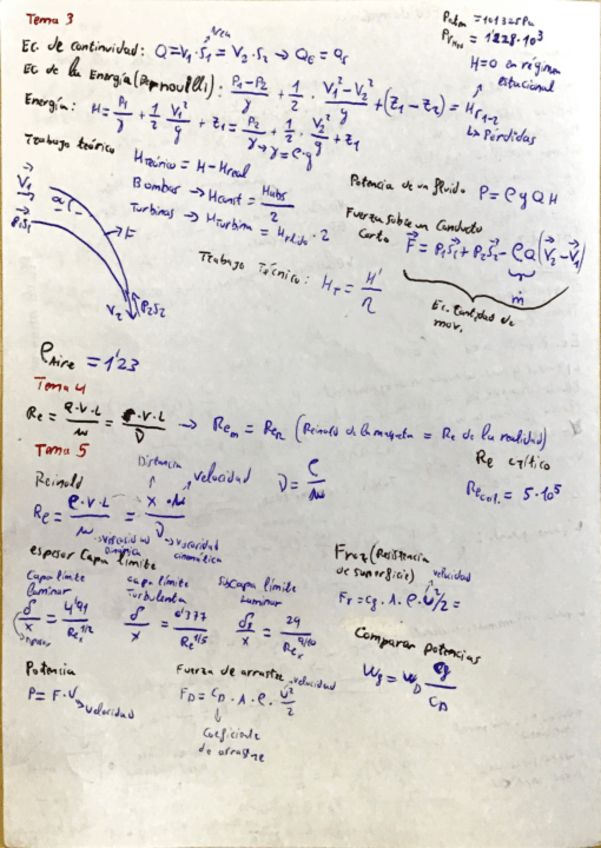 Tema 3
Patm = 101325 Pa
Área
Ec. de continuidad: Q = V₁·S₁ = V₂·S₂ → Q_E = Q_S
H=0 en régimen estacional
Ec de la Energía (Bernouilli): (P₁-P₂)/γ + 1/2 · (V₁²-V₂²)/g + (Z₁-Z₂) = H r₁₋₂
↳ Pérdidas
Energía: H = P₁/γ + 1/2 V₁²/g + Z₁ = P₂/γ + 1/2 · V₂²/g + Z₁
γ → γ = ρ·g
Trabajo teórico
H teórico = H - H real
Bombas → H const = Habs/2
Turbinas → H turbina = · 2
Potencia de un fluido P = ρ g Q H
Fuerza sobre un Conducto
Corto F⃗ = P₁S⃗₁ + P₂S⃗₂ - ρQ(V⃗₂ - V⃗₁)
ṁ
Ec. Cantidad de mov.
Trabajo técnico: H_T = H'/η
V⃗₁
P₁S₁
α
F
V₂
P₂S₂
ρ Aire = 1'23
Tema 4
Re = ρ·V·L/μ = ·V·L/ν → Re_m = Re_R (Reinold de la maqueta = Re de la realidad)
Tema 5
Re crítico
Re = 5·10⁵
Distancia
velocidad
Reinold
ν = ρ/μ
Re = ρ·V·L/μ = X·/ν
→ viscosidad dinámica
→ viscosidad cinemática
espesor Capa limite
Capa límite laminar
δ/x = 4'91/Re_x^1/2
espesor
capa límite Turbulenta
δ/x = 0'377/Re^1/5
límite Laminar
δ/x = 29/Re_x^9/10
Froz (Resistencia de superficie)
velocidad
F_f = C_f · A · ρ · U²/2 =
Comparar potencias
W_f = W_D C_f/C_D
Potencia
P = F·U
→ velocidad
Fuerza de arrastre
velocidad
F_D = C_D · A · ρ · U²/2
↓
Coeficiente de arrastre